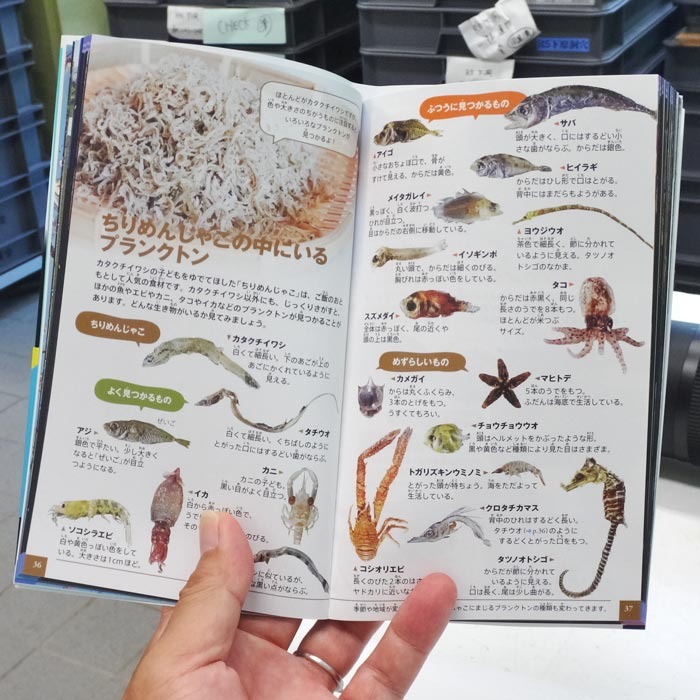 CHECK
ほとんどがカタクチイワシですが、
色や大きさのちがうものに注目すると
いろいろなプランクトンが
見つかるよ!
ちりめんじゃこの中にいる
プランクトン
カタクチイワシの子どもをゆでてほした「ちりめんじゃこ」は、ご飯のおと
もとして人気の食材です。カタクチイワシ以外にも、じっくりさがすと、
ほかの魚やエビやカニ、タコやイカなどのプランクトンが見つかることが
あります。どんな生き物がいるか見てみましょう。
ちりめんじゃこ
カタクチイワシ
白くて細長い。下のあごが上の
あごにかくれているように
見える。
よく見つかるもの
ぜいご
アジ
銀色で平たい。少し大きく
なると「ぜいご」が目立
つようになる。
タチウオ
白くて細長い。くちばしのように
とがった口にはするどい歯がならぶ。
カニ
カニの子ども。
黒い目がよく目立つ。
イカ
ソコシラエビ
白や黄色っぽい色をして
いる。大きさは1cmほど。
36
ふつうに見つかるもの
サバ
頭が大きく、口にはするどい小
さな歯がならぶ。からだは銀色。
アイゴ
小さなおちょぼ口で、骨が
すけて見える。からだは黄色。
ヒイラギ
からだはひし形で口はとがる。
背中にはまだらもようがある。
メイタガレイ
黒っぽく、白く波打つ
ひれが目立つ。
目はからだの右側に移動している。
ヨウジウオ
茶色で細長く、節に分かれて
いるように見える。タツノオ
トシゴのなかま。
イソギンポ
丸い頭で、からだは細くのびる。
胸びれは赤っぽい色をしている。
タコ
からだは赤黒く、同じ
長さのうでを8本もつ。
ほとんどが米つぶ
サイズ。
スズメダイ
全体は赤っぽく、尾の近くや
頭の上は黒色。
めずらしいもの
カメガイ
からは丸くふくらみ、
3本のとげをもつ。
うすくてもろい。
マヒトデ
5本のうでをもつ。
ふだんは海底で生活している。
チョウチョウウオ
頭はヘルメットをかぶったような形。
黒や黄色など種類により見た目はさまざま。
トガリズキンウミノミ
とがった頭が特ちょう。海をただよって
生活している。
クロタチカマス
背中のひれはするどく長い。
タチウオ(➡p.36)のように
するどくとがった口をもつ。
コシオリエビ
タツノオトシゴ
からだが節に分かれて
いるように見える。
口は長く、尾は少し曲がる。
じゃこにまじるプランクトンの種類も変わってきます。
37